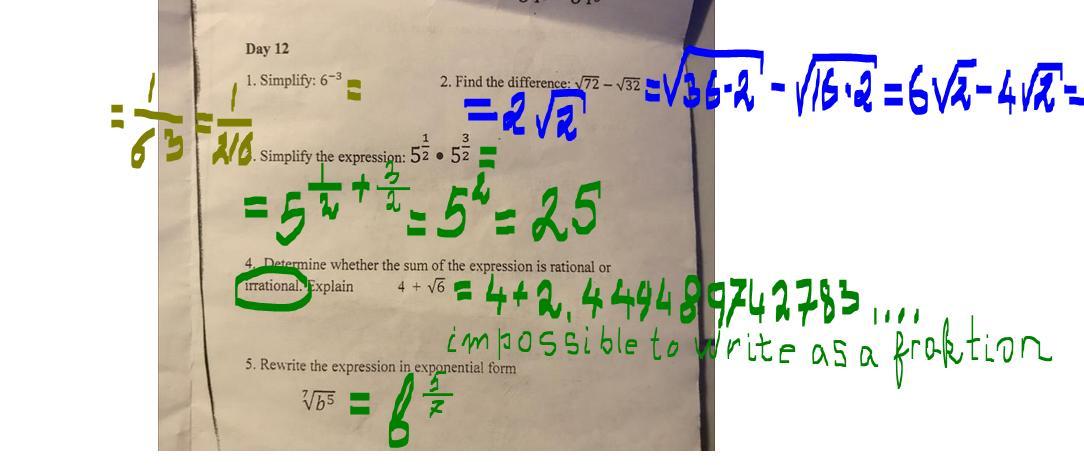 Day 12
1. Simplify: 6⁻³ =
= 1/6³ = 1/216
2. Find the difference: √72 − √32 = √36·2 − √16·2 = 6√2 − 4√2 =
= 2√2
. Simplify the expression: 5^(1/2) • 5^(3/2) =
= 5^(1/2 + 3/2) = 5² = 25
4. Determine whether the sum of the expression is rational or
irrational. Explain 4 + √6 = 4+2.449489742783....
impossible to write as a fraktion
5. Rewrite the expression in exponential form
⁷√b⁵ = b^(5/7)